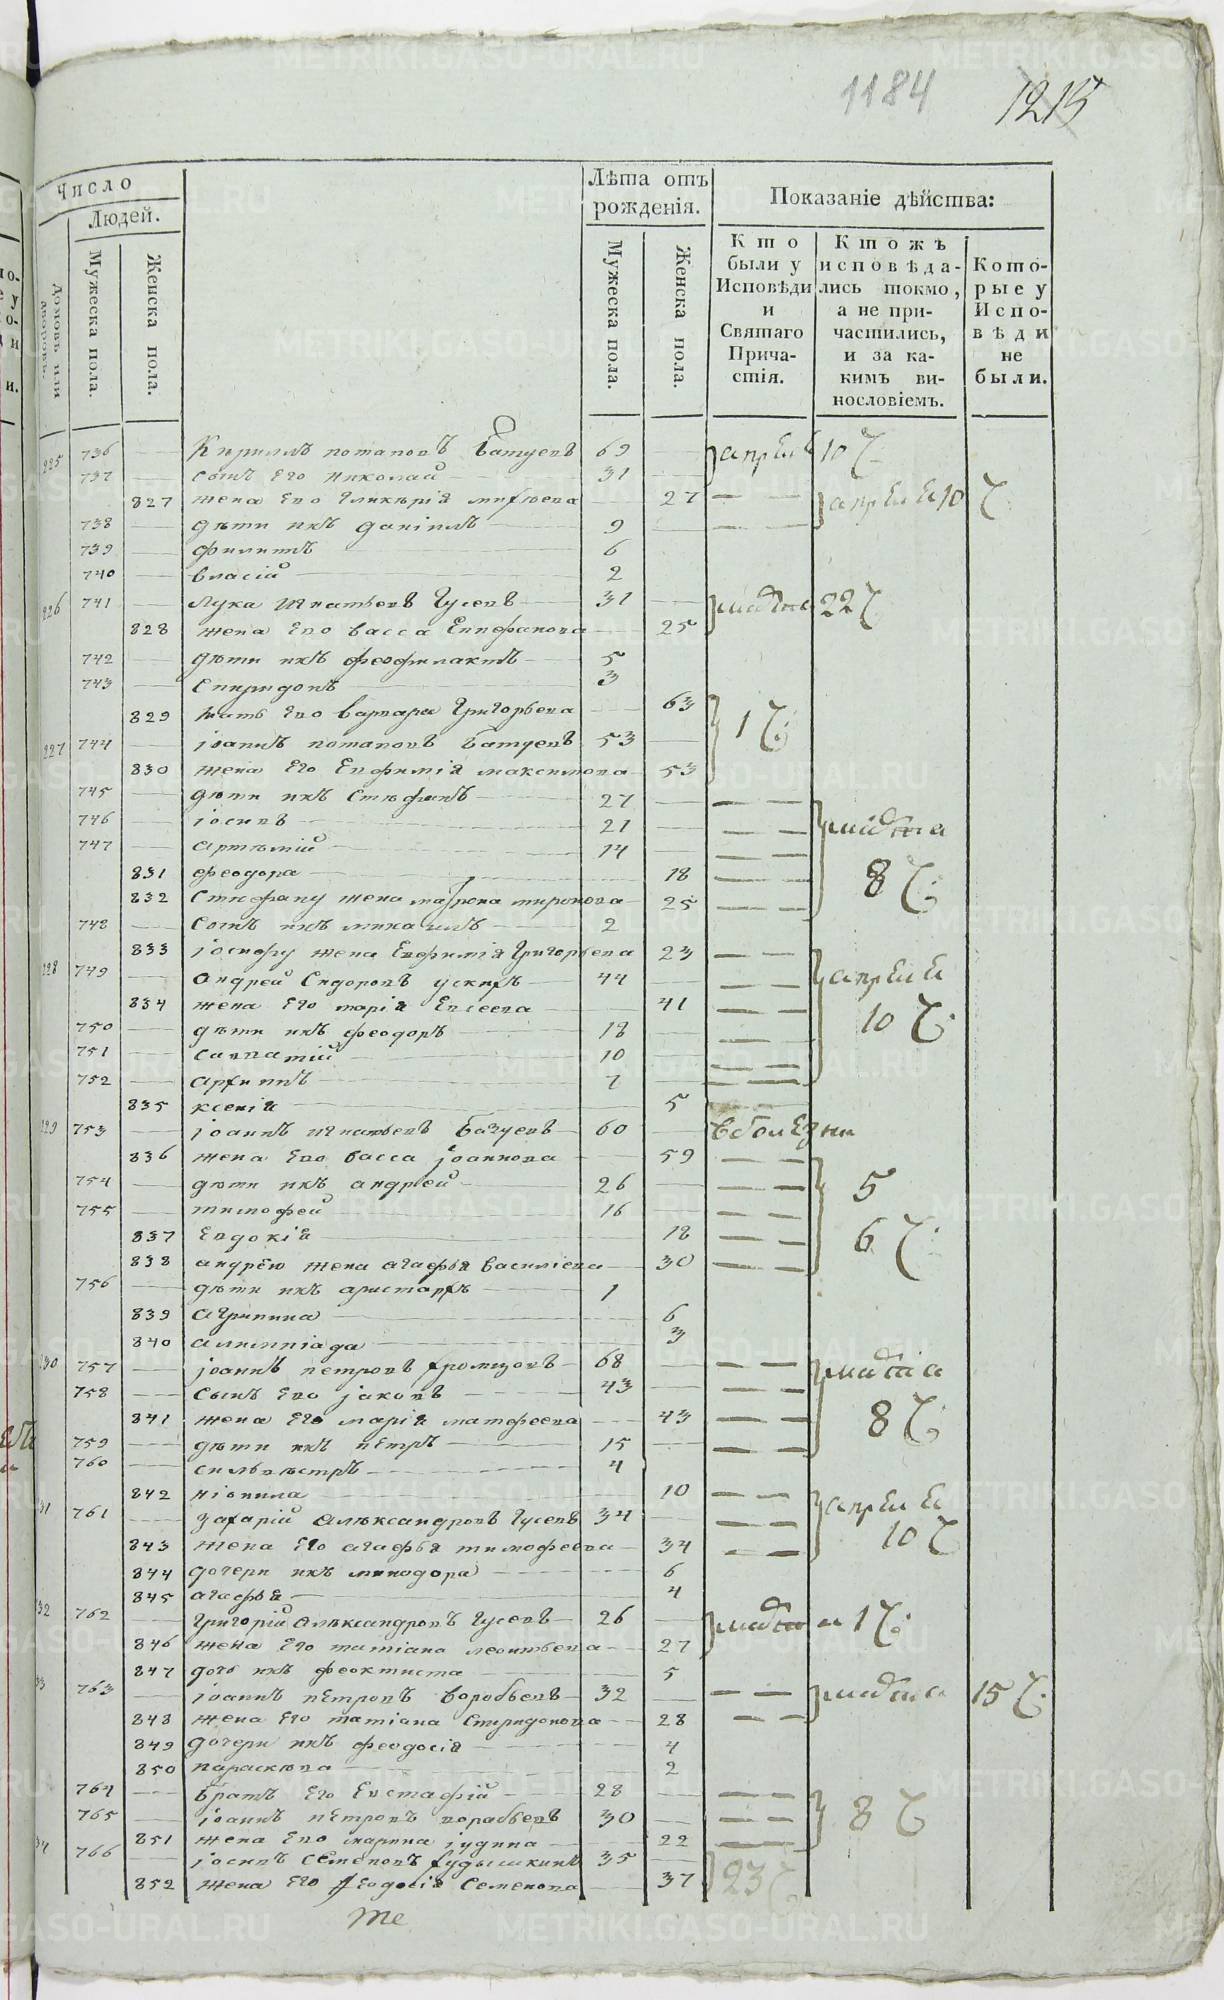 1184 1215
Число
Людей.
Домовъ или дворовъ.
Мужеска пола.
Женска пола.
Лѣта отъ рожденія.
Мужеска пола.
Женска пола.
Показаніе дѣйства:
Кто были у Исповѣди и Святаго Причастія.
Ктожъ исповѣдались токмо, а не причастились, и за какимъ винословіемъ.
Которые у Исповѣди не были.
225 736 Кириллъ потаповъ Батуевъ 69 апреля 10
737 сынъ его николай 31
827 жена его гликерія михѣева 27 апреля 10
738 дѣти ихъ даніилъ 9
739 филиппъ 6
740 власій 2
226 741 лука игнатьевъ гусевъ 31 22
828 жена его васса епифанова 25
742 дѣти ихъ феофилактъ 5
743 спиридонъ 3
829 мать его варвара григорьева 63 1
227 744 іоаннъ потаповъ батуевъ 53
830 жена его евфимія максимова 53
745 дѣти ихъ стефанъ 27
746 іосифъ 21 марта
747 артемій 14
831 феодора 18 8
832 стефану жена мирона 25
748 сынъ ихъ михаилъ 2
833 іосифу жена евфимія григорьева 23
228 749 андрей сидоровъ ускихъ 44 апреля
834 жена его марія евсеева 41 10
750 дѣти ихъ феодоръ 18
751 савватій 10
752 архипъ 7
835 ксенія 5
229 753 іоаннъ игнатьевъ 60 в болезни
836 жена его васса іоаннова 59
754 дѣти ихъ андрей 26 5
755 тимофей 16
837 евдокія 18 6
838 андрею жена агафья василіева 30
756 дѣти ихъ аристархъ 1
839 агрипина 6
840 олимпіада 3
230 757 іоаннъ петровъ хромцовъ 68
758 сынъ его іаковъ 43
841 жена его марія матфеева 43 8
759 дѣти ихъ петръ 15
760 сильвестръ 4
842 неонила 10
31 761 захарій александровъ гусевъ 34 апреля
843 жена его агафья тимофеева 34 10
844 дочери ихъ минодора 6
845 агафья 4
32 762 григорій александровъ гусевъ 26 марта 1
846 жена его татіана леонтьева 27
847 дочь ихъ феоктиста 5
33 763 іоаннъ петровъ воробьевъ 32 марта 15
848 жена его татіана спиридонова 28
849 дочери ихъ феодосія 4
850 параскева 2
764 братъ его евстафій 28
765 іоаннъ петровъ воробьевъ 30 8
851 жена его марина іудина 22
766 іосифъ семеновъ худышкинъ 35
852 жена его феодосія семенова 37 23
те
METRIKI.GASO-URAL.RU